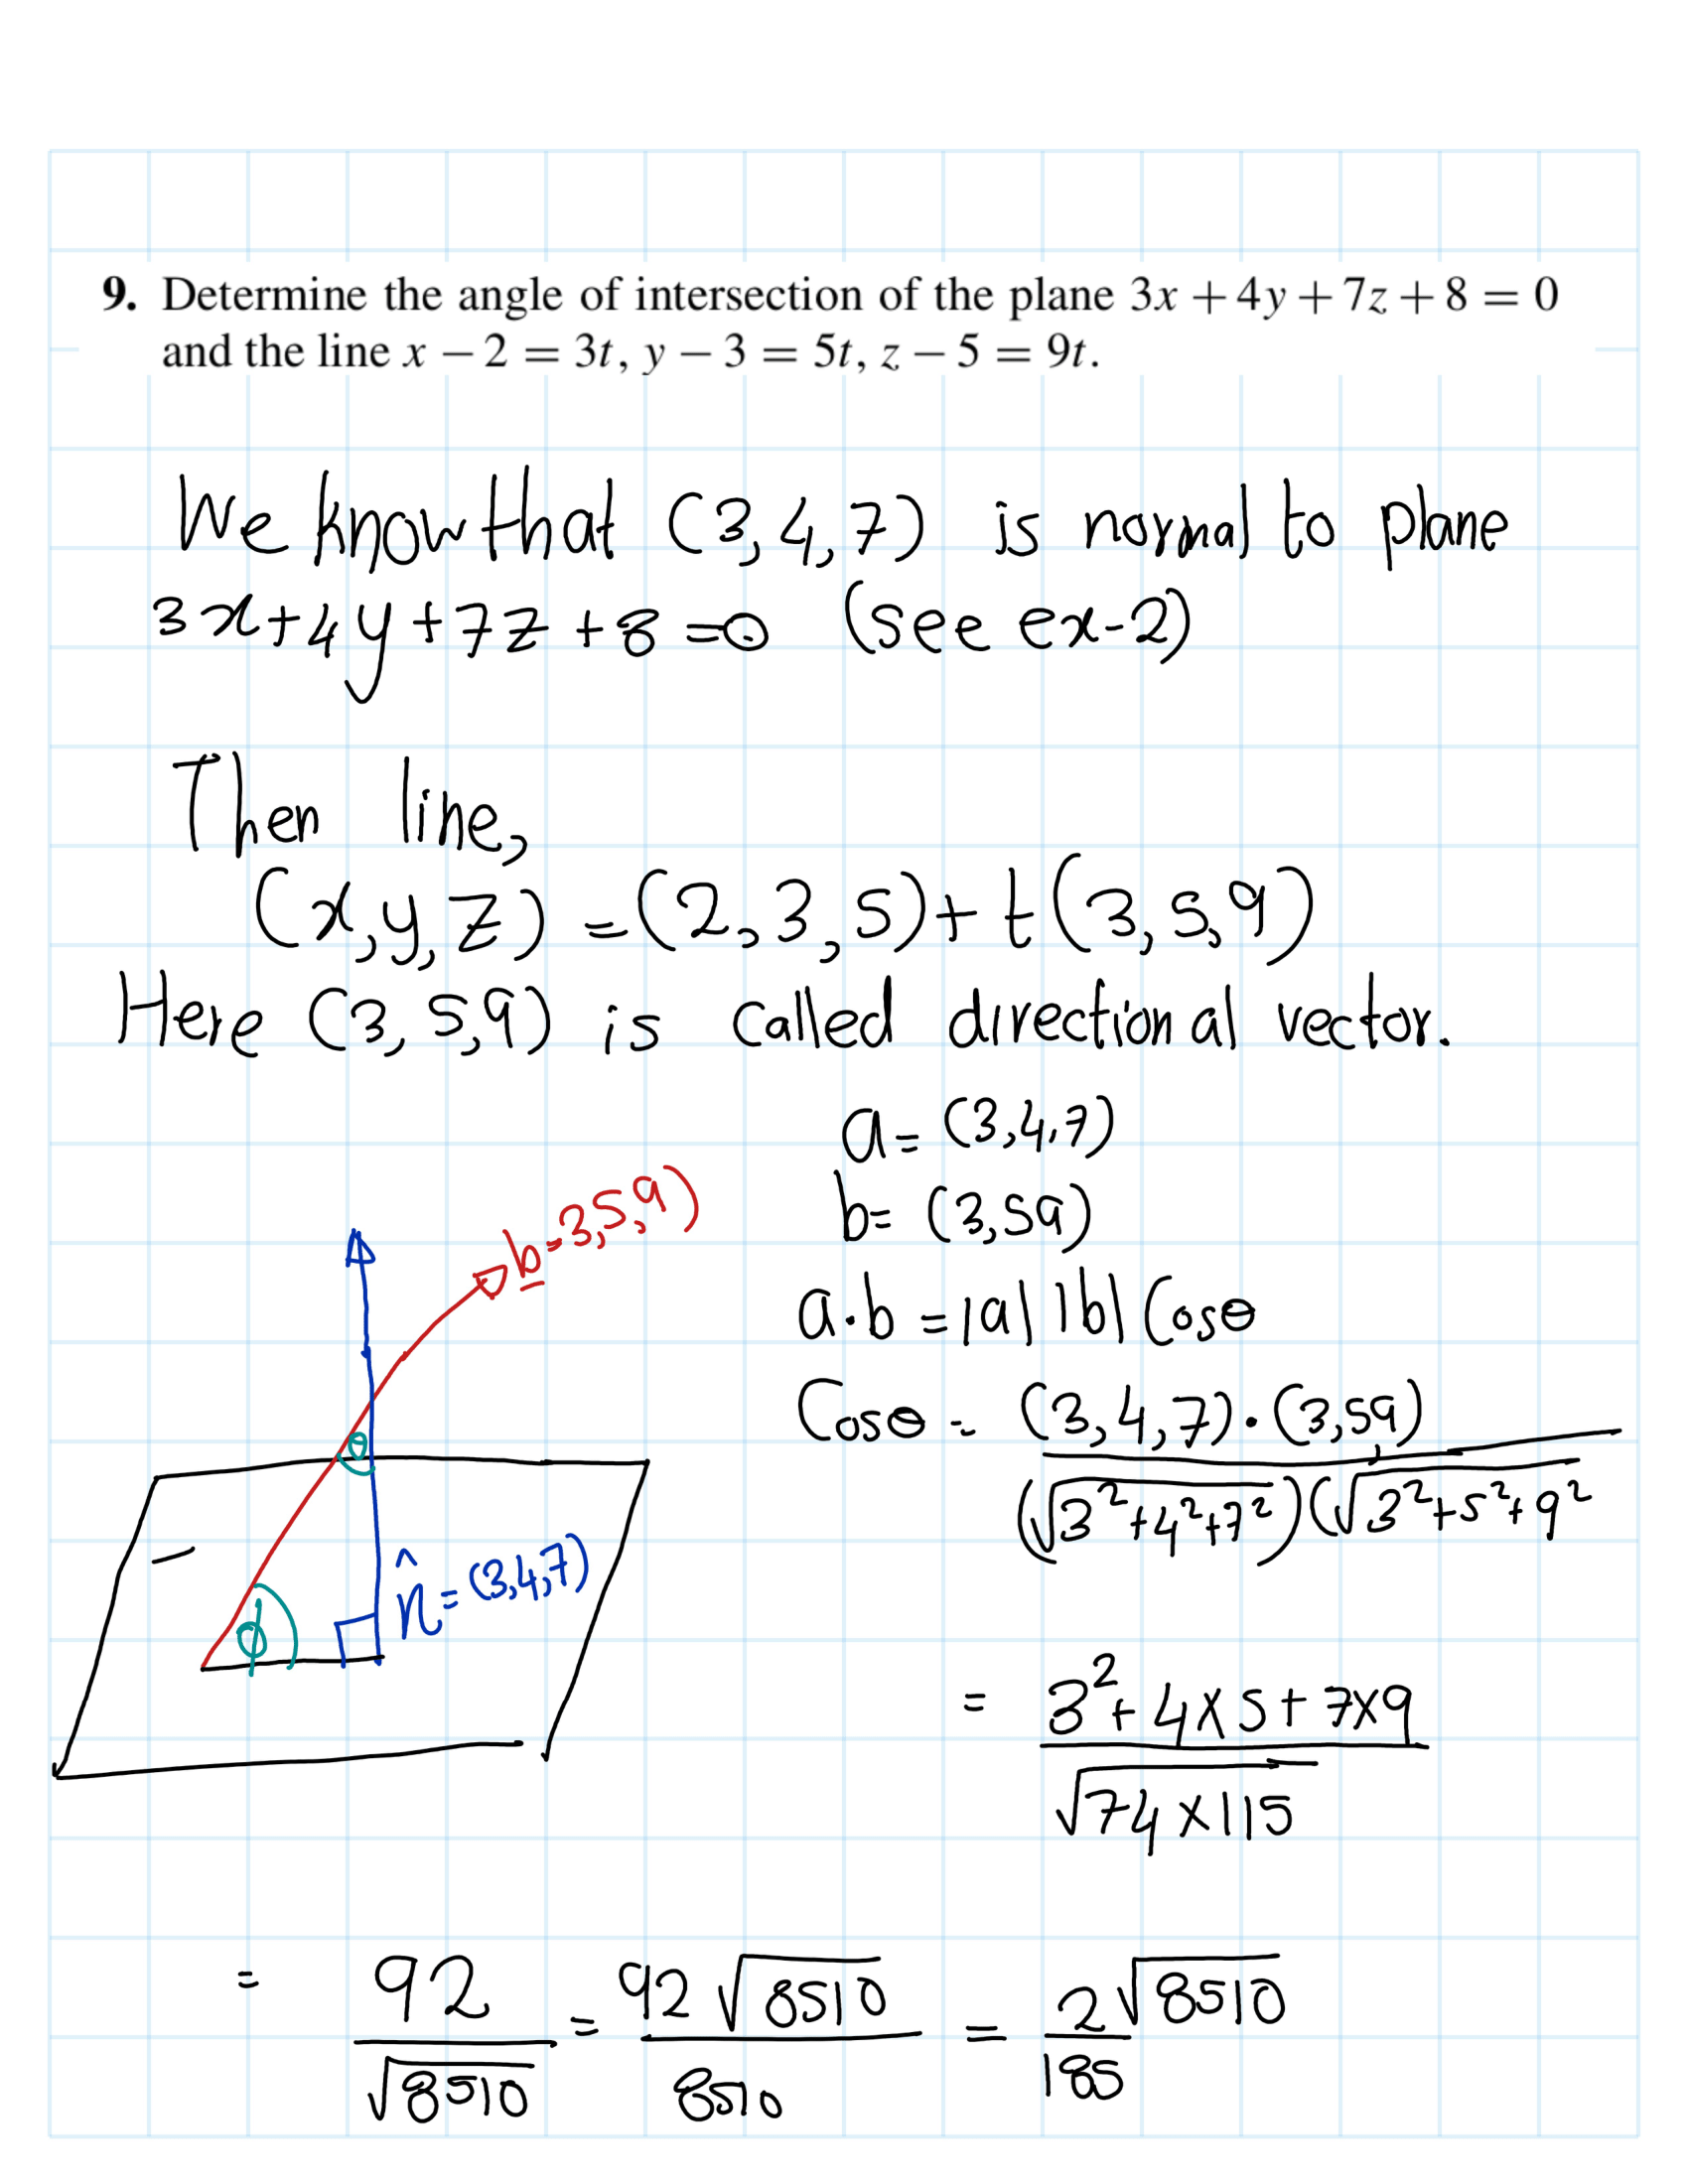 9. Determine the angle of intersection of the plane 3x + 4y + 7z + 8 = 0
and the line x − 2 = 3t, y − 3 = 5t, z − 5 = 9t.
We know that (3, 4, 7) is normal to plane
3x+4y+7z+8=0 (see ex-2)
Then line,
(x,y,z) = (2,3,5)+ t(3,5,9)
Here (3, 5,9) is called directional vector.
a = (3,4,7)
b= (3,59)
a·b = |a| |b| Cosθ
Cosθ = (3,4,7)·(3,5,9)
(√3²+4²+7²)(√3²+5²+9²
= 3²+4×5+7×9
√74×115
b=3,5,9)
θ
n̂=(3,4,7)
ϕ
= 92/√8510 = 92√8510/8510 = 2√8510/185